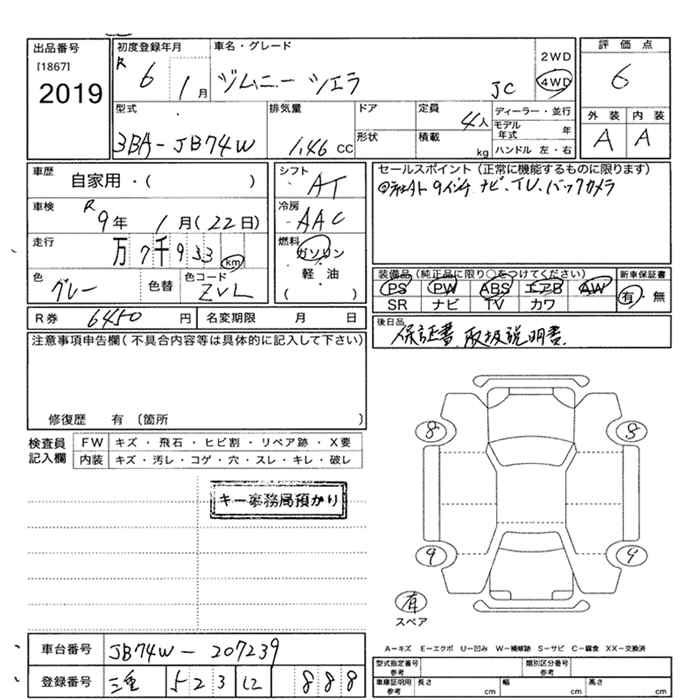 出品番号 初度登録年月 車名・グレード 評価点
[1867] 2019 R 6年 1月 ジムニー シエラ JC 2WD 4WD 6
型式 排気量 ドア 定員 ディーラー・並行 外装 内装
3BA-JB74W 1.46 CC 形状 積載 4人 kg モデル年式 年 A A
ハンドル 左・右
車歴 自家用・( ) シフト AT セールスポイント (正常に機能するものに限ります)
車検 R 9年 1月(22日) 冷房 AAC 9インチ ナビ、TV、バックカメラ
走行 万 7千933 km 燃料 ガソリン・軽・油 ( )
色 グレー 色替 色コード ZVL
装備品(純正品に限り○をつけてください) 新車保証書
PS PW ABS エアB AW 有・無
SR ナビ TV カワ
R券 6450 円 名変期限 月 日
後日品 保証書、取扱説明書、
注意事項申告欄(不具合内容等は具体的に記入して下さい)
修復歴 有 (箇所 )
検査員記入欄 FW キズ・飛石・ヒビ割・リペア跡・X要
内装 キズ・汚レ・コゲ・穴・スレ・キレ・破レ
キー事務局預かり
8
9
有
スペア
車台番号 JB74W-207239
登録番号 三重 523 888
A-キズ E-エクボ U-凹み W-補修跡 S-サビ C-腐食 XX-交換済
型式指定番号 参考 類別区分番号 参考
車庫証明用 参考 長さ cm 幅 cm 高さ cm